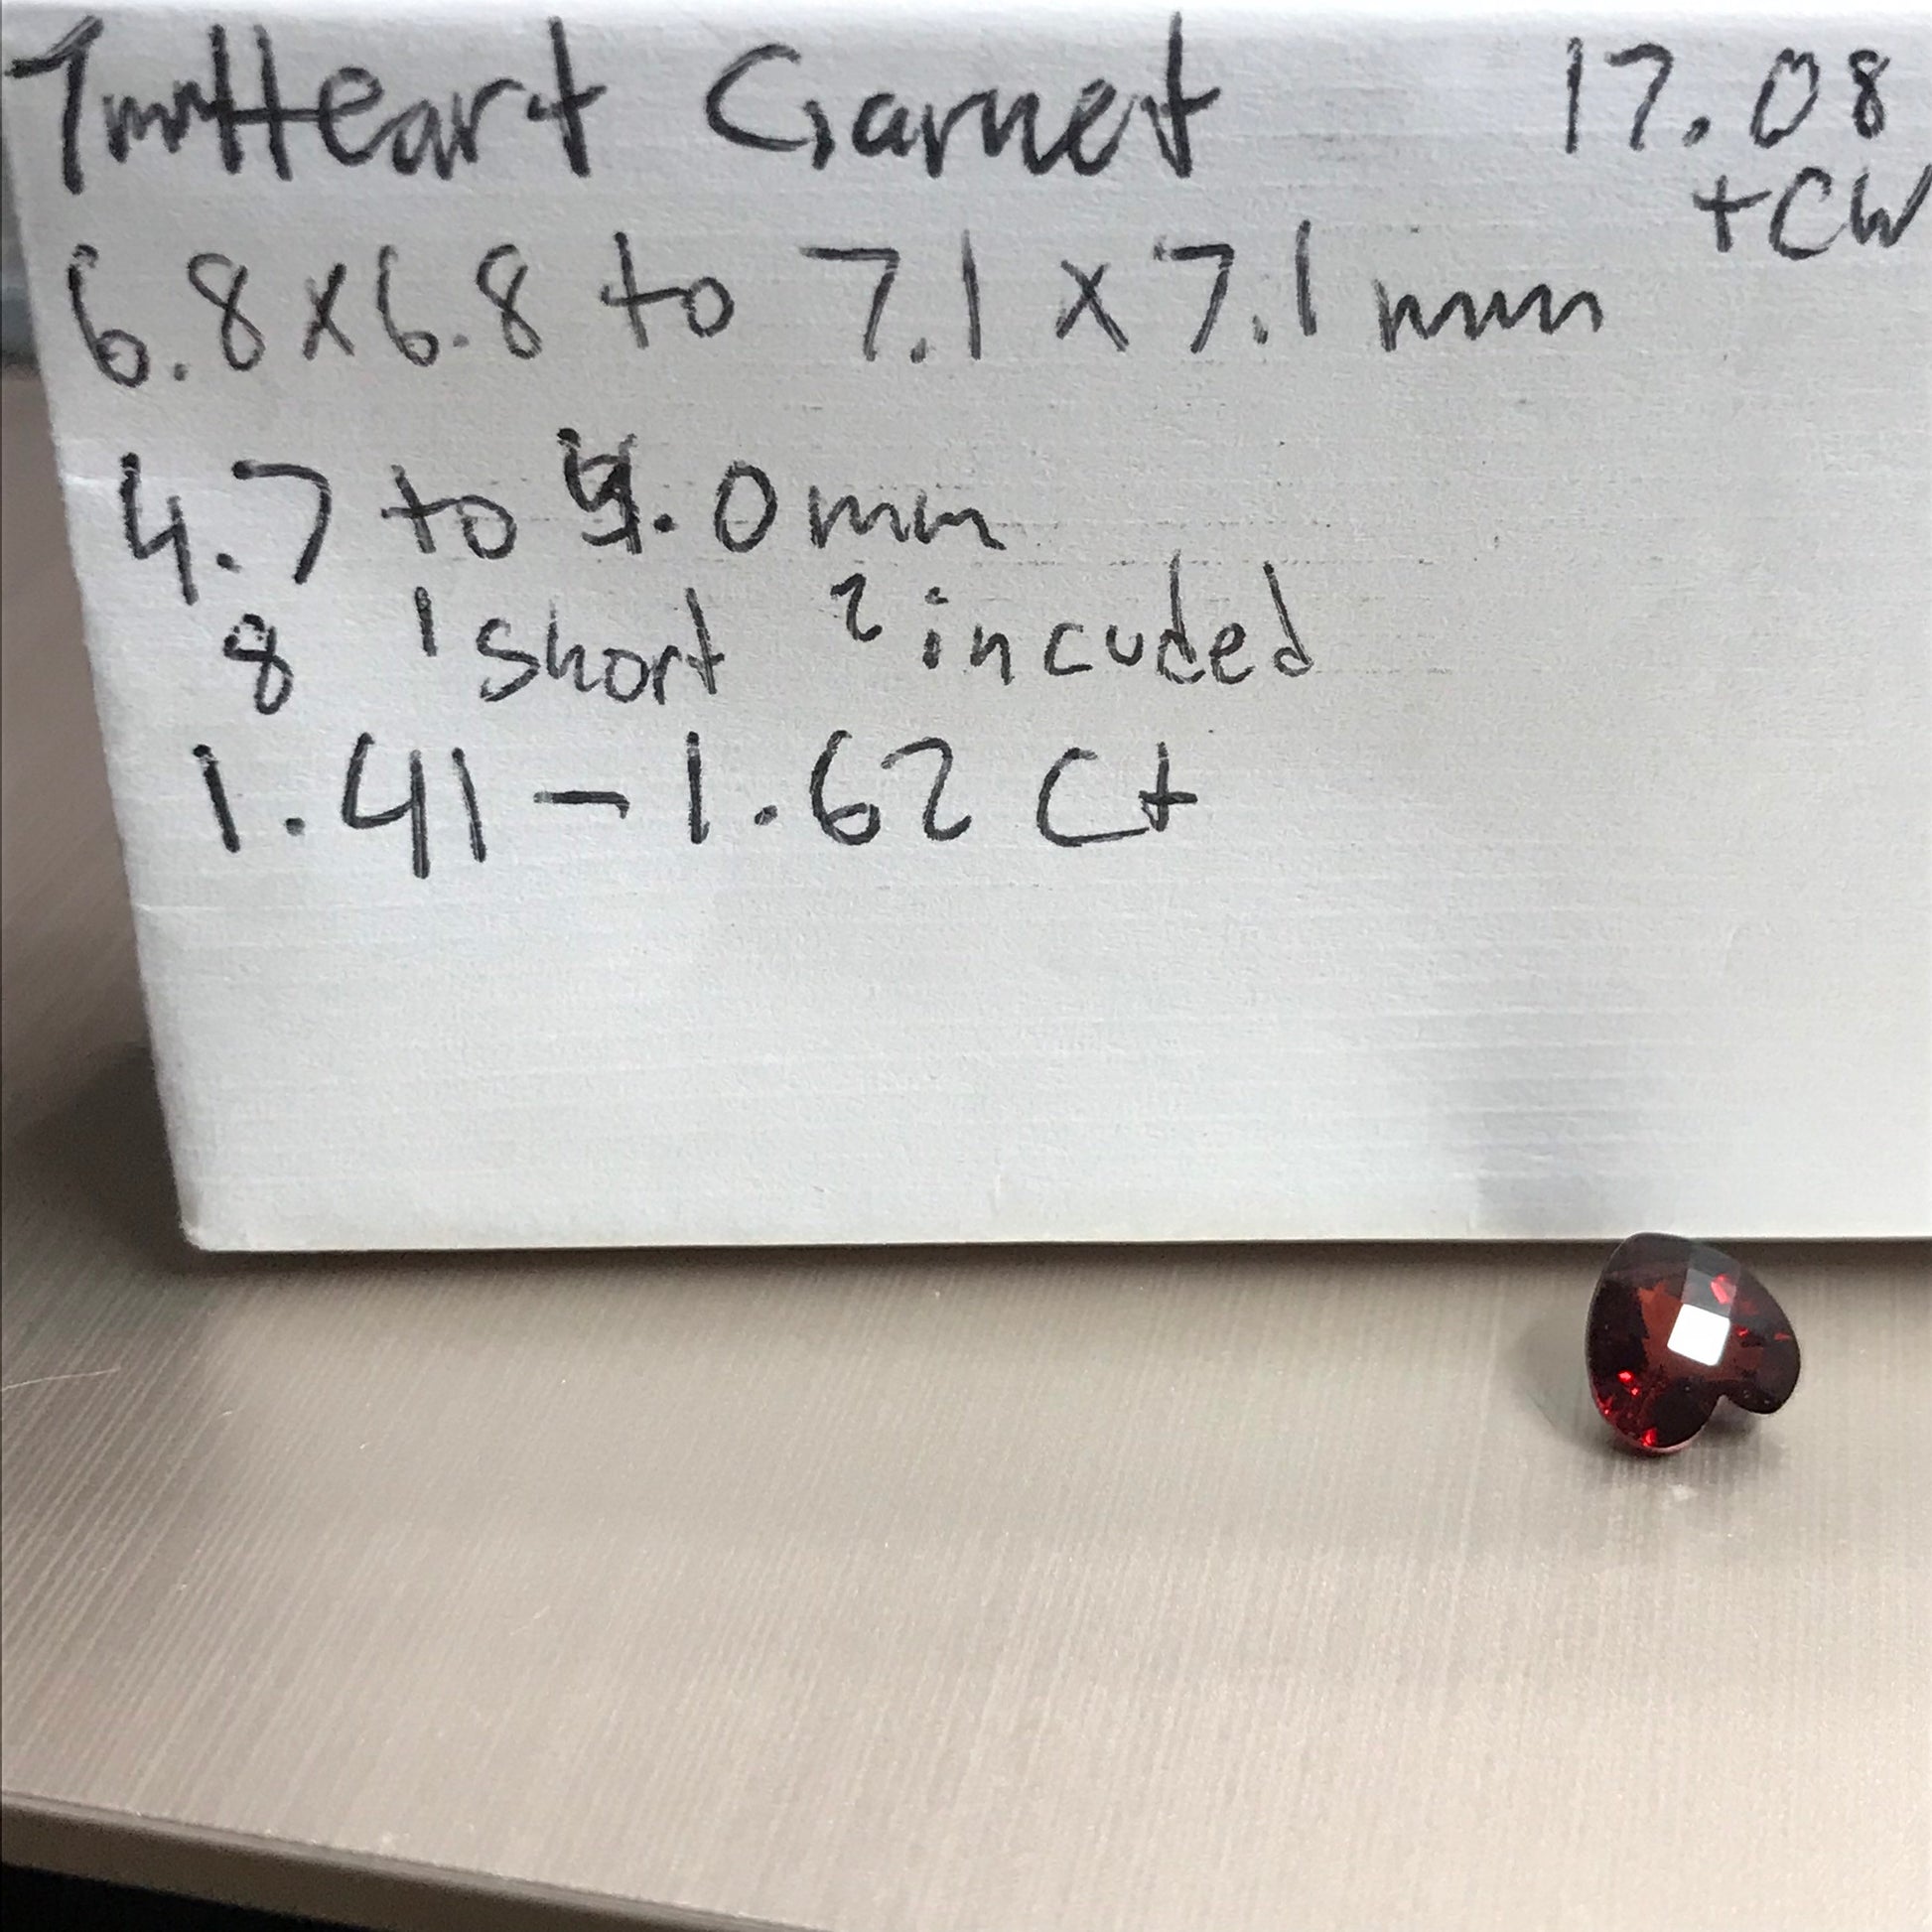 7mm Heart Garnet 17.08
tCW
6.8 x 6.8 to 7.1 x 7.1 mm
4.7 to 5.0 mm
8 1 short 2 incuded
1.41 - 1.62 Ct